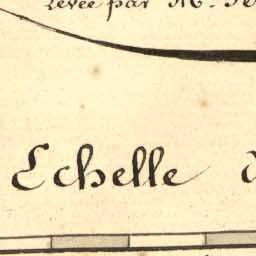 Levée par M. Je
Echelle d